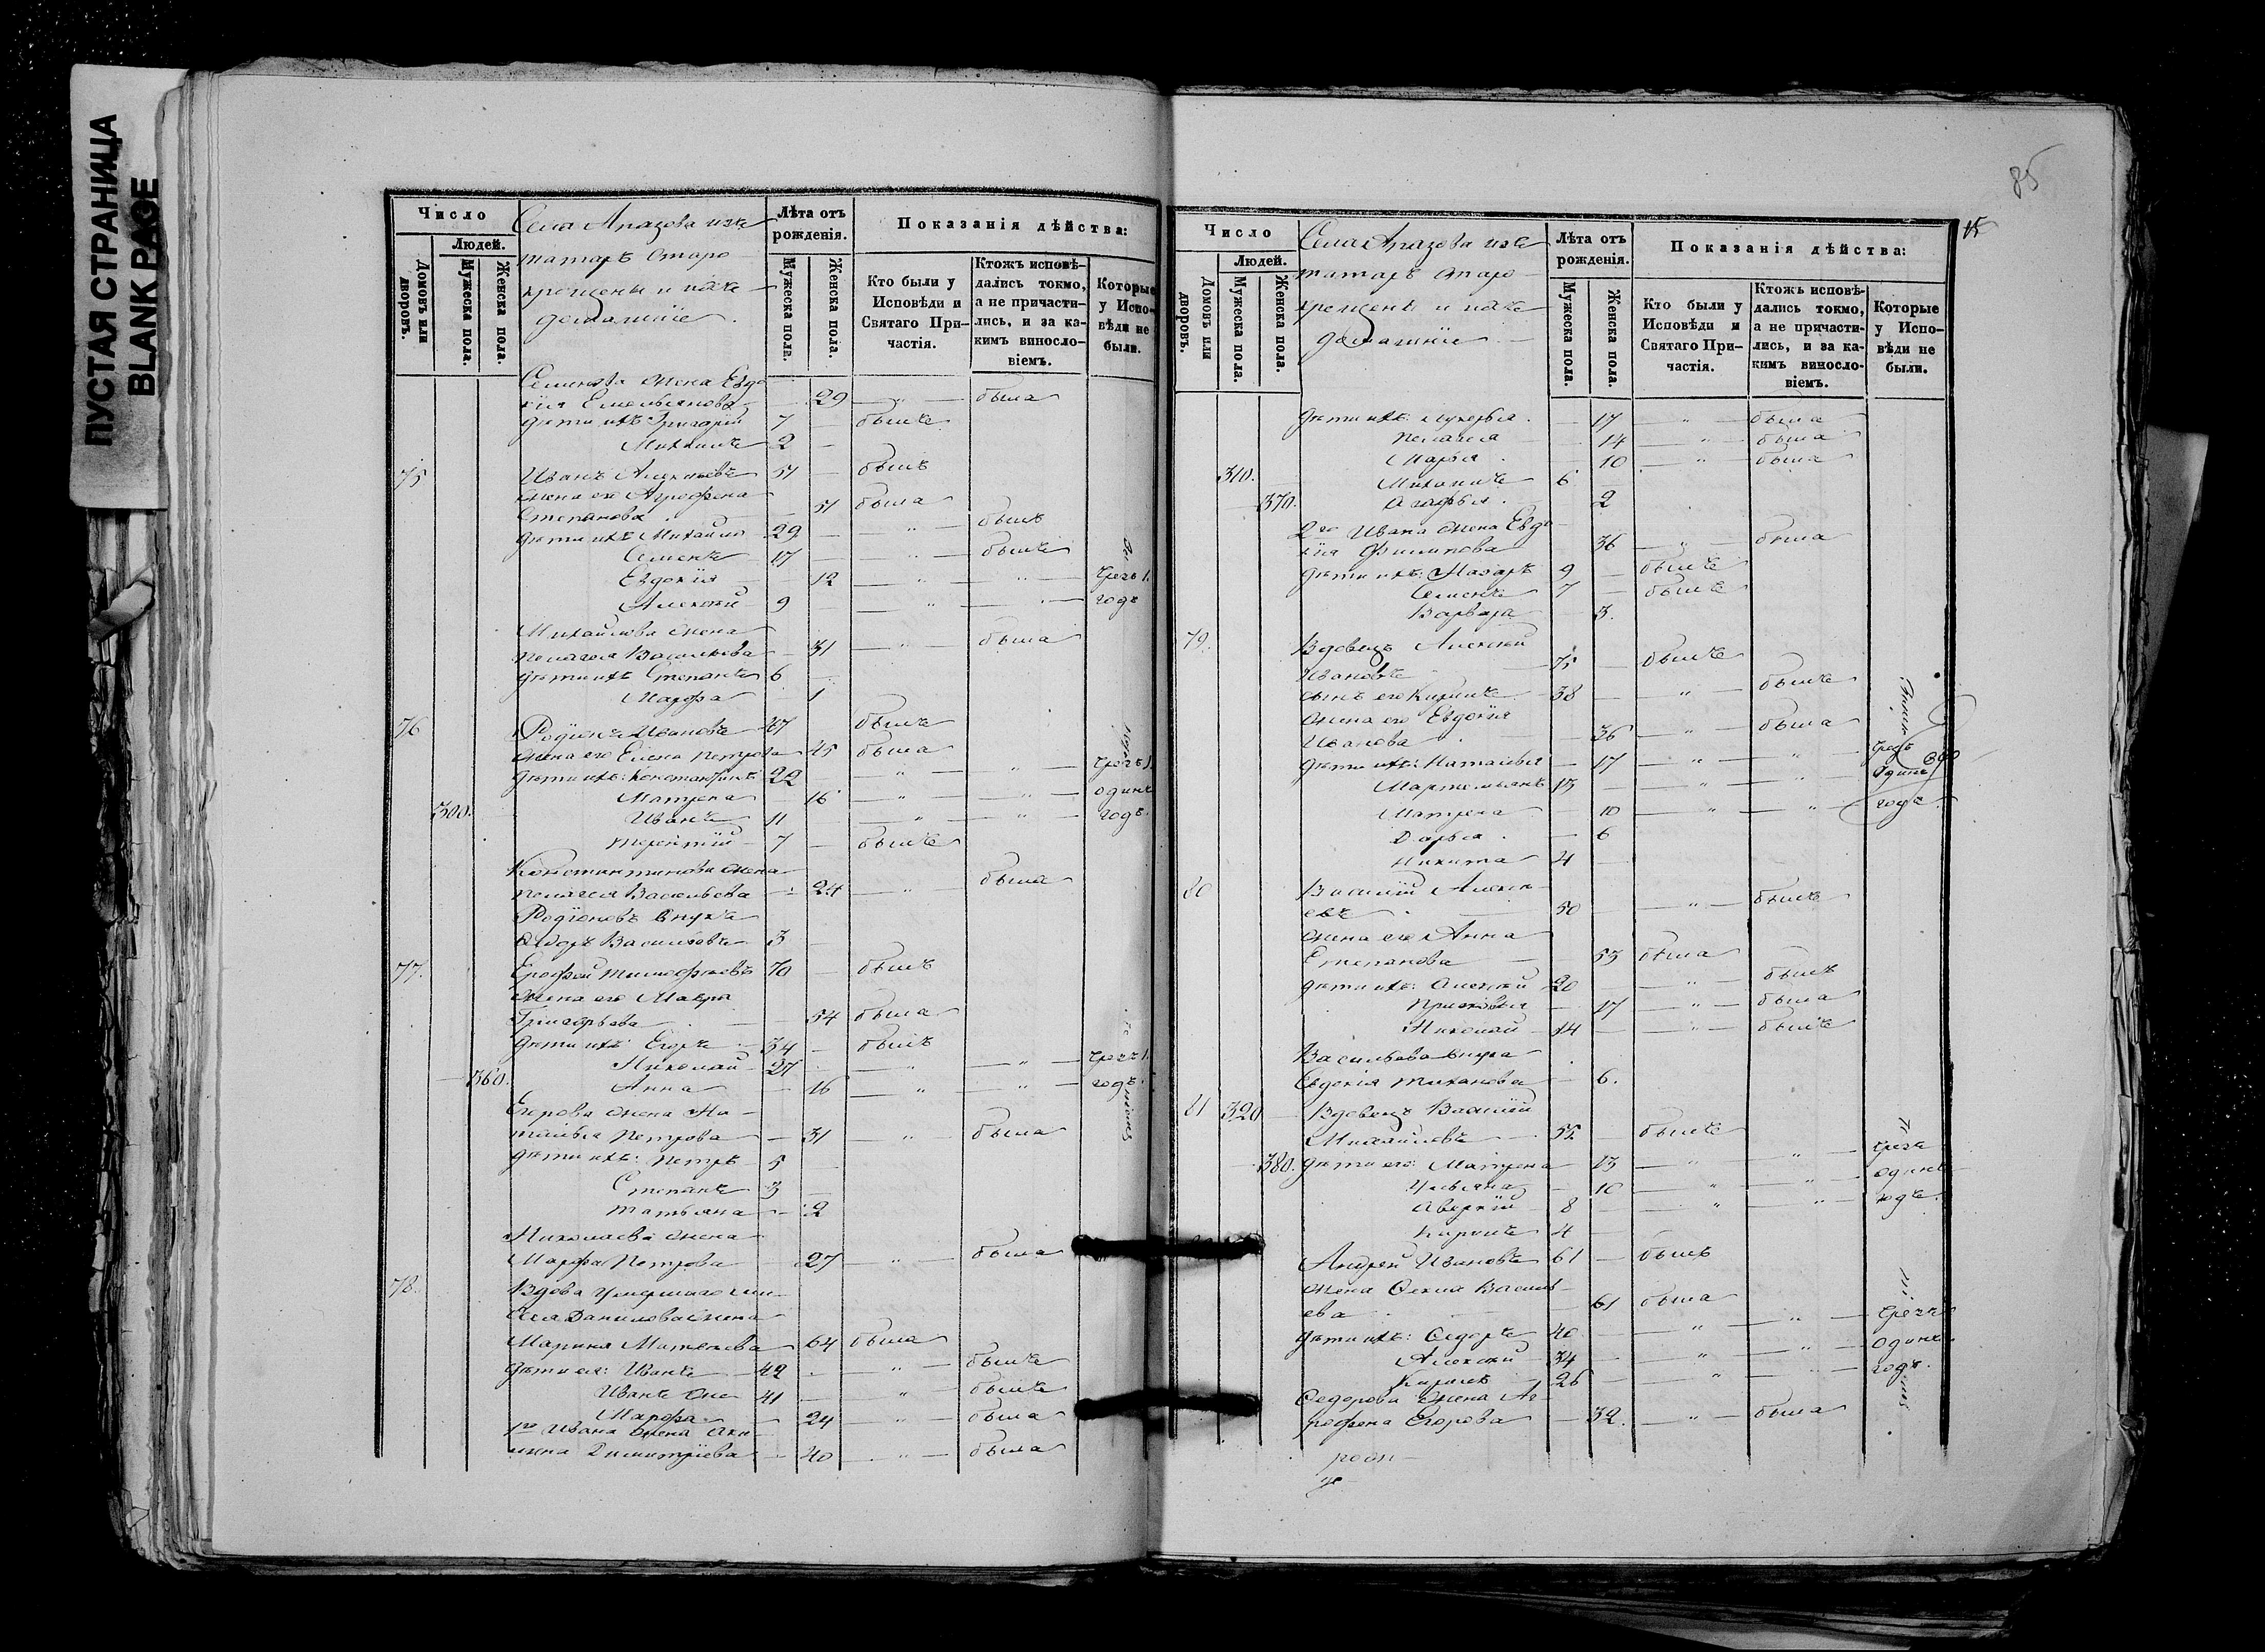 ПУСТАЯ СТРАНИЦА
BLANK PAGE
Число
Людей.
Домовъ или дворовъ.
Мужеска пола.
Женска пола.
Села Апазова изъ
татаръ старо
крещены и ихъ
домашніе
Лѣта отъ рожденія.
Мужеска пола.
Женска пола.
Показанія дѣйства:
Кто были у Исповѣди и Святаго При-
частія.
Ктожъ исповѣ-
дались токмо,
а не причасти-
лись, и за ка-
кимъ винosло-
віемъ.
Которые
у Испо-
вѣди не
были.
Семенова жена Евдо
кія Емельянова 29 — " — была
дѣти ихъ Григорій 7 — былъ
Михаилъ 2 —
75 Иванъ Алексѣевъ 51 — былъ
жена его Агрофена
Степанова — 51 была
дѣти ихъ Михаилъ 29 — — " — былъ
Семенъ 17 — — " — былъ
Евдокія 12 — " — " — Чрезъ 1.
Алексѣй 9 — " — " — годъ
Михайлова жена
Пелагея Василъева 31 — " — была
дѣти ихъ Степанъ 6 —
Марфа — 1
76 Родіонъ Ивановъ 47 былъ
жена его Елена Петрова 45 была
дѣти ихъ: Константинъ 22 — " — " — Чрезъ
Матрена — 16 — " — " — одинъ
300. Иванъ 11 — " — " — годъ.
Терентій 7 — былъ
Константинова жена
Пелагея Васильева — 24 — " — была
Родіоновъ внукъ
Ѳедоръ Васильевъ 3
77. Ерофей Тимофѣевъ 70 — былъ
жена его Мавра
Григорьева — 54 была
дѣти ихъ Егоръ 34 — былъ
Николай 27 — " — " — Чрезъ 1.
360. Анна — 16 — " — " — годъ.
Егорова жена На-
талья Петрова — 31 — " — была
дѣти ихъ: Петръ 5
Степанъ 3
Татьяна — 2
Николаева жена
Марфа Петрова 27 — " — была
78. Вдова умершаго
Данилова жена
Марина Матвѣева 64 была
дѣти ея: Иванъ 42 — " — былъ
Иванъ 41 — " — былъ
Марфа — 24 — " — была
1го Ивана жена Аку
лина Димитріева — 40 — " — была
85
Число
Людей.
Домовъ или дворовъ.
Мужеска пола.
Женска пола.
Села Апазова изъ
татаръ старо
крещенъ и ихъ
домашніе
Лѣта отъ рожденія.
Мужеска пола.
Женска пола.
Показанія дѣйства:
Кто были у Исповѣди и Святаго При-
частія.
Ктожъ исповѣ-
дались токмо,
а не причасти-
лись, и за ка-
кимъ винosло-
віемъ.
Которые
у Испо-
вѣди не
были.
дѣти ихъ: Лукерья — 17 — " — была
Пелагея — 14 — " — была
Марья — 10 — " — была
310. Михаилъ 6 —
370. Агафья 2
2го Ивана жена Евдо
кія Филипова 36 — " — была
дѣти ихъ: Назаръ 9 — былъ
Семенъ 7 — былъ
Варвара — 3.
79. Вдовецъ Алексѣй
Ивановъ 75 — былъ
сынъ его Кирилъ 38 — " — былъ
жена его Евдокія
Иванова 36 — " — была
дѣти ихъ: Наталья — 17 — " — " — Чрезъ
Мартемьянъ 15 — " — " — Одинъ
Матрена 10 — " — " — годъ
Дарья — 6
Никита 4 —
80 Василій Алексѣ-
евъ 50 — " — былъ
жена его Анна
Степанова — 53 была
дѣти ихъ: Алексѣй 20 — " — былъ
Прасковья — 17 — " — была
Николай 14 — " — былъ
Васильева внука
Евдокія — 6.
81 320 Вдовецъ Василій
Михайловъ 55 — былъ
380. дѣти его: Матрена — 13 — " — " — Чрезъ
Ульяна — 10 — " — " — одинъ
Аверкій 8 — " — " — годъ.
Кирилъ 4 —
Андрей Ивановъ 61 — былъ
жена Васильева — 61 была
дѣти ихъ: Ѳедоръ 40 — " — " — Чрезъ
Алексѣй 34 — " — " — Одинъ
Кирилъ 26 — " — годъ.
Ѳедорова жена Аг-
рофена Егорова — 32. — " — была